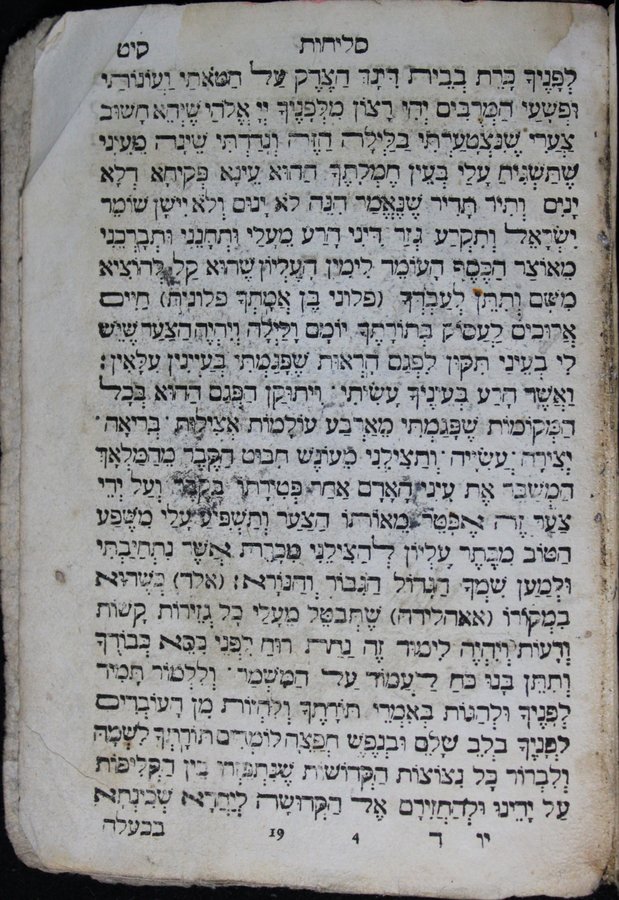 סליחות קיט
לְפָנֶיךָ כָּרֵת בְּבֵית דִּינְךָ הַצֶּדֶק עַל חַטֹּאתַי וַעֲוֹנוֹתַי
וּפְשָׁעַי הַמְרֻבִּים יְהִי רָצוֹן מִלְּפָנֶיךָ יְיָ אֱלֹהַי שֶׁיְּהֵא חָשׁוּב
צַעֲרִי שֶׁנִּצְטַעַרְתִּי בַּלַּיְלָה הַזֶּה וְנָדַדְתִּי שֵׁינָה מֵעֵינַי
שֶׁתַּשְׁגִּיחַ עָלַי בְּעֵין חֶמְלָתֶךָ הַהוּא עֵינָא פְּקִיחָא דְלָא
יָנִים וְתִיר תָּדִיר שֶׁנֶּאֱמַר הִנֵּה לֹא יָנוּם וְלֹא יִישָׁן שׁוֹמֵר
יִשְׂרָאֵל וְתִקְרַע גְּזַר דִּינִי הָרַע מֵעָלַי וּתְחָנֵּנִי וּתְבָרְכֵנִי
מֵאוֹצַר הַכֶּסֶף הָעוֹמֵד לִימִין הָעֶלְיוֹן שֶׁהוּא קַל לְהוֹצִיא
מִשָּׁם וְתִתֵּן לְעַבְדְּךָ (פלוני בֶּן אֲמָתְךָ פלונית) חַיִּים
אֲרוּכִים לַעֲסוֹק בְּתוֹרָתֶךָ יוֹמָם וָלַיְלָה וְיִהְיֶה הַצַּעַר שֶׁיֵּשׁ
לִי בְּעֵינַי תִּקּוּן לִפְגַם הָרְאוּת שֶׁפָּגַמְתִּי בְּעַיְינִין עִלָּאִין:
וַאֲשֶׁר הָרַע בְּעֵינֶיךָ עָשִׂיתִי וִיתוּקַן הַפְּגָם הַהוּא בְּכָל
הַמְּקוֹמוֹת שֶׁפָּגַמְתִּי מֵאַרְבַּע עוֹלָמוֹת אֲצִילוּת בְּרִיאָה
יְצִירָה עֲשִׂיָּה וְתַצִּילֵנִי מֵעוֹנֶשׁ חִבּוּט הַקֶּבֶר מֵהַמַּלְאָךְ
הַמְשַׁבֵּר אֶת עֵינֵי הָאָדָם אַחַר פְּטִירָתוֹ בַּקֶּבֶר וְעַל יְדֵי
צַעַר זֶה אֶפָּטֵר מֵאוֹתוֹ הַצַּעַר וְתַשְׁפִּיעַ עָלַי מִשֶּׁפַע
הַטּוֹב מִכֶּתֶר עֶלְיוֹן לְהַצִּילֵנִי מִכָּרֵת אֲשֶׁר נִתְחַיַּבְתִּי
וּלְמַעַן שִׁמְךָ הַגָּדוֹל הַגִּבּוֹר וְהַנּוֹרָא: (אלד) כְּשֶׁהוּא
בִּמְקוֹרוֹ (אאהלידה) שֶׁתְּבַטֵּל מֵעָלַי כָּל גְּזֵירוֹת קָשׁוֹת
וְרָעוֹת וְיִהְיֶה לִימוּד זֶה נַחַת רוּחַ לִפְנֵי כִּסֵּא כְבוֹדֶךָ
וְתִתֵּן בָּנוּ כֹּחַ לַעֲמוֹד עַל הַמִּשְׁמָר וְלִלְמוֹד תָּמִיד
לְפָנֶיךָ וּלְהַגּוֹת בְּאִמְרֵי תּוֹרָתֶךָ וְלִהְיוֹת מִן הָעוֹבְדִים
לְפָנֶיךָ בְּלֵב שָׁלֵם וּבְנֶפֶשׁ חֲפֵצָה לוֹמְדִים תּוֹרָתְךָ לִשְׁמָהּ
וְלִבְרוֹר כָּל נִצוֹצוֹת הַקְּדוֹשׁוֹת שֶׁנִּתְפַּזְּרוּ בֵּין הַקְּלִיפּוֹת
עַל יָדֵינוּ וּלְהַחֲזִירָם אֶל הַקְּדוּשָׁה לְיַחֲדָא שְׁכִינְתָּא
יו ד 4 19 בבעלה